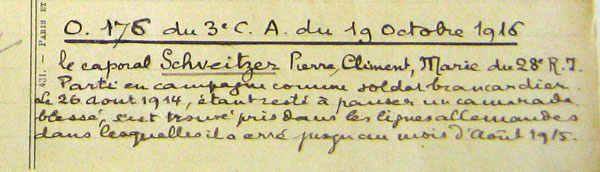 O. 176 du 3e C. A. du 19 Octobre 1916
le caporal Schveitzer Pierre, Climent, Marie du 28e R.I.
Parti en campagne comme soldat brancardier.
Le 26 Aout 1914, étant resté à panser un camarade
blessé, s'est trouvé pris dans les lignes allemandes
dans lesquelles il a erré jusqu'au mois d'Août 1915.
431. — PARIS ET